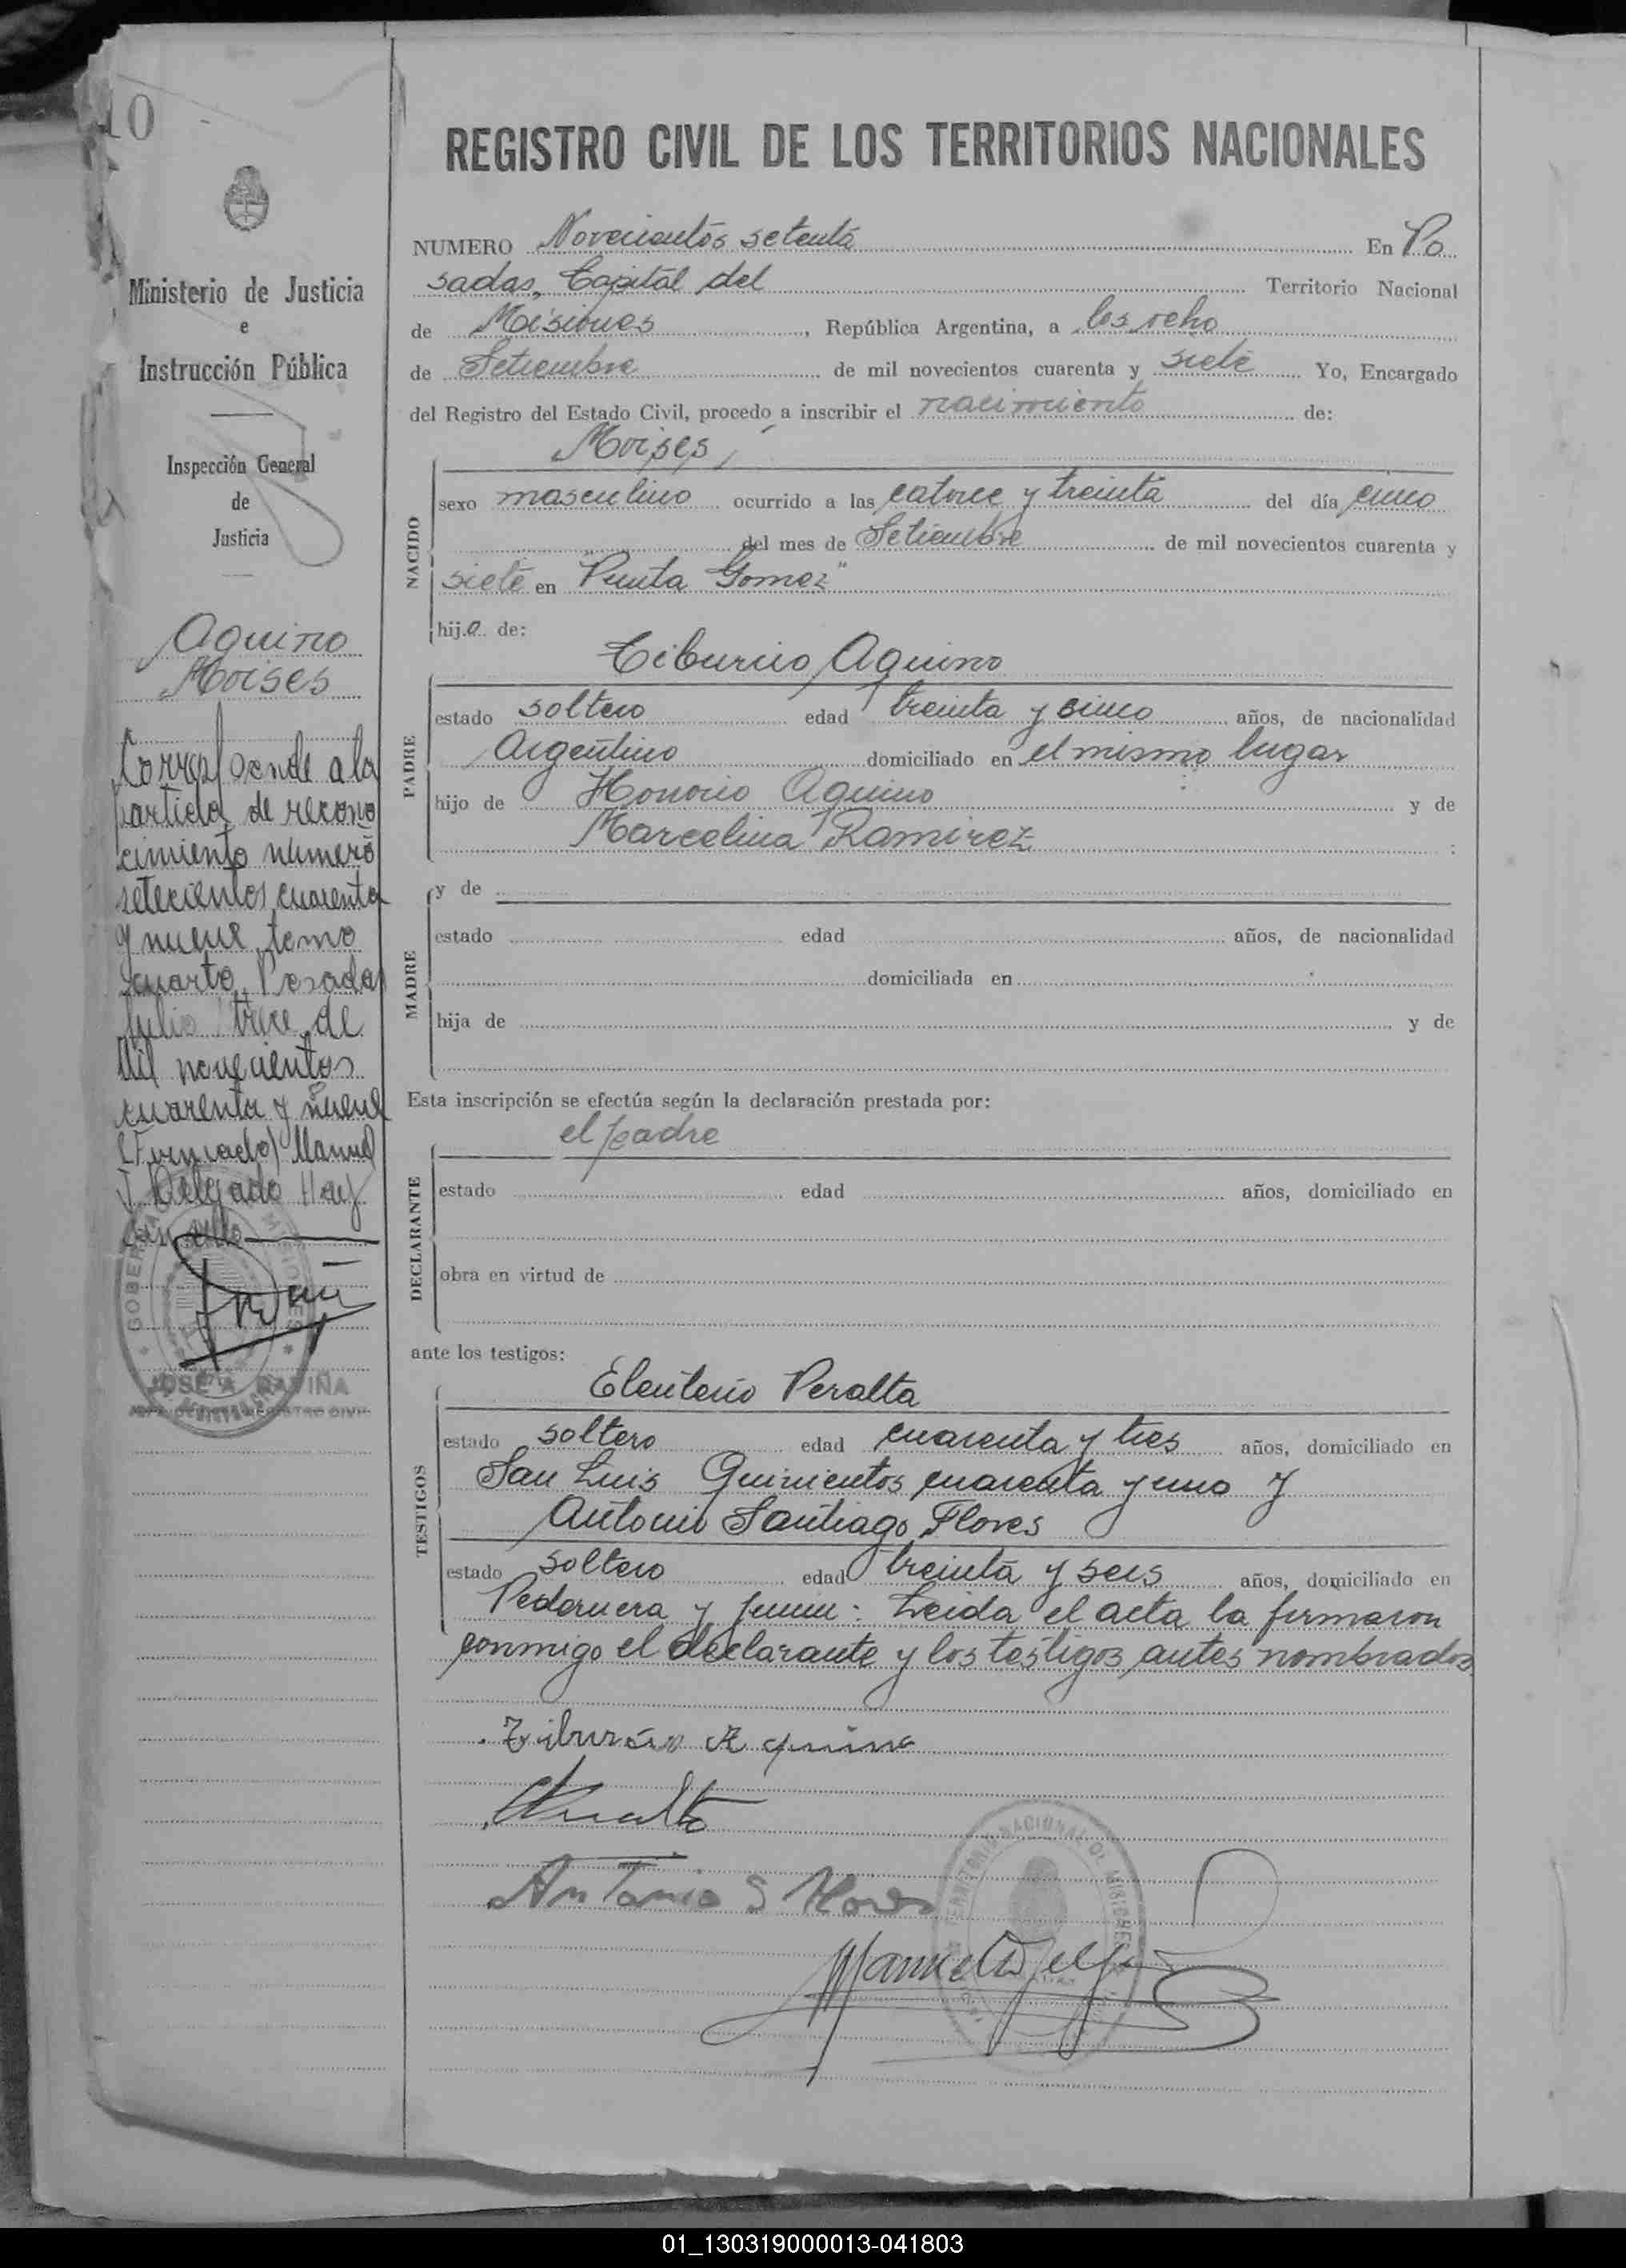 10
Ministerio de Justicia
e
Instrucción Pública
Inspección General
de
Justicia
Aquino
Moises
Corresponde a la
partida de recono
cimiento numero
setecientos cuarenta
y nueve tomo
cuarto Posadas
Julio trece de
Mil novecientos
cuarenta y nueve
(Firmado) Manuel
J. Delgado Hay
un sello
JOSE A.
REGISTRO CIVIL DE LOS TERRITORIOS NACIONALES
NUMERO Novecientos setenta En Po
sadas, Capital del Territorio Nacional
de Misiones, República Argentina, a los ocho
de Setiembre de mil novecientos cuarenta y siete Yo, Encargado
del Registro del Estado Civil, procedo a inscribir el nacimiento de:
Moises,
NACIDO
sexo masculino ocurrido a las catorce y treinta del día cinco
del mes de Setiembre de mil novecientos cuarenta y
siete en "Punta Gomez"
hijo de:
Tiburcio Aquino
PADRE
estado soltero edad treinta y cinco años, de nacionalidad
Argentino domiciliado en el mismo lugar
hijo de Honorio Aquino y de
Marcelina Ramirez ;
MADRE
y de
estado edad años, de nacionalidad
domiciliada en
hija de y de
Esta inscripción se efectúa según la declaración prestada por:
el padre
DECLARANTE
estado edad años, domiciliado en
obra en virtud de
ante los testigos:
Eleuterio Peralta
TESTIGOS
estado soltero edad cuarenta y tres años, domiciliado en
San Luis Quinientos cuarenta y uno y
Antonio Santiago Flores
estado soltero edad treinta y seis años, domiciliado en
Pedernera y Junin: Leida el acta la firmaron
conmigo el declarante y los testigos antes nombrados
Tiburcio Aquino
EPeralta
Antonio S Flores
TERRITORIO NACIONAL DE MISIONES
Manuel J Delgado
01_130319000013-041803